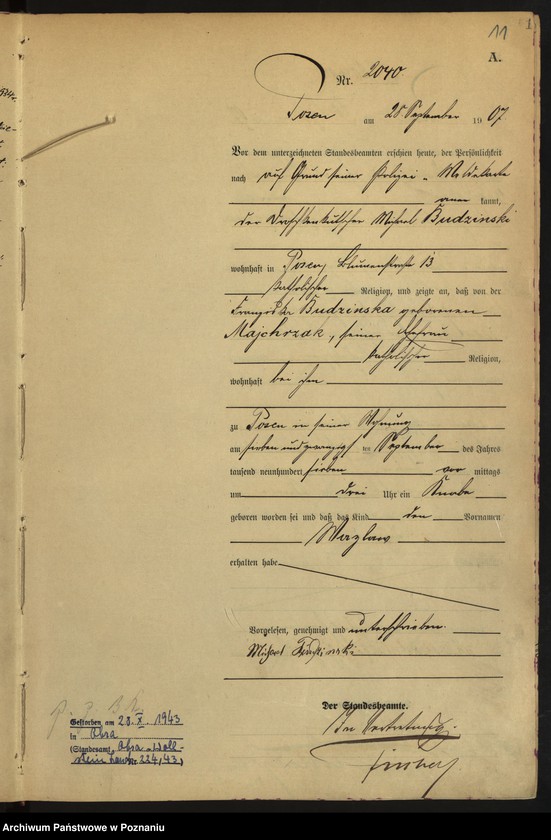 11
1
A.
Nr. 2040.
Posen am 28. September 1907
Vor dem unterzeichneten Standesbeamten erschien heute, der Persönlichkeit
nach auf Grund seiner Polizei-Meldekarte
kannt,
der Droschkenkutscher Michael Budzinski
wohnhaft in Posen, Blumenstraße 13
katholischer Religion, und zeigte an, daß von der
Franziska Budzinska geborenen
Majchrzak, seiner Ehefrau
katholischer Religion,
wohnhaft bei ihm
zu Posen in seiner Wohnung
am sieben und zwanzigsten September des Jahres
tausend neunhundert sieben vor mittags
um drei Uhr ein Knabe
geboren worden sei und daß das Kind den Vornamen
Wazlaw
erhalten habe.
Vorgelesen, genehmigt und unterschrieben.
Michael Budzinski
Der Standesbeamte.
In Vertretung.
Gestorben am 23. X. 1943
in Obra
(Standesamt Obra-Woll-
stein Land Nr. 224/43)
Archiwum Państwowe w Poznaniu